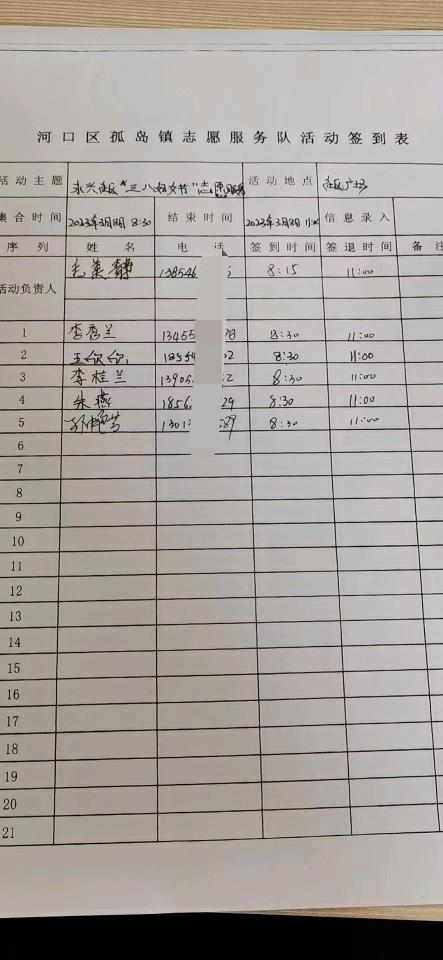 河口区孤岛镇志愿服务队活动签到表
活动主题 永兴社区“三八妇女节”志愿服务 活动地点 社区广场
集合时间 2023年3月8日 8:30 结束时间 2023年3月8日 信息录入
序列 姓名 电话 签到时间 签退时间 备注
活动负责人 毛英静 138546 8:15 11:00
1 李秀兰 13455 78 8:30 11:00
2 王欣欣 18554 02 8:30 11:00
3 李桂兰 13905 2 8:30 11:00
4 朱燕 1856 29 8:30 11:00
5 1301 89 8:30 11:00
6
7
8
9
10
11
12
13
14
15
16
17
18
19
20
21